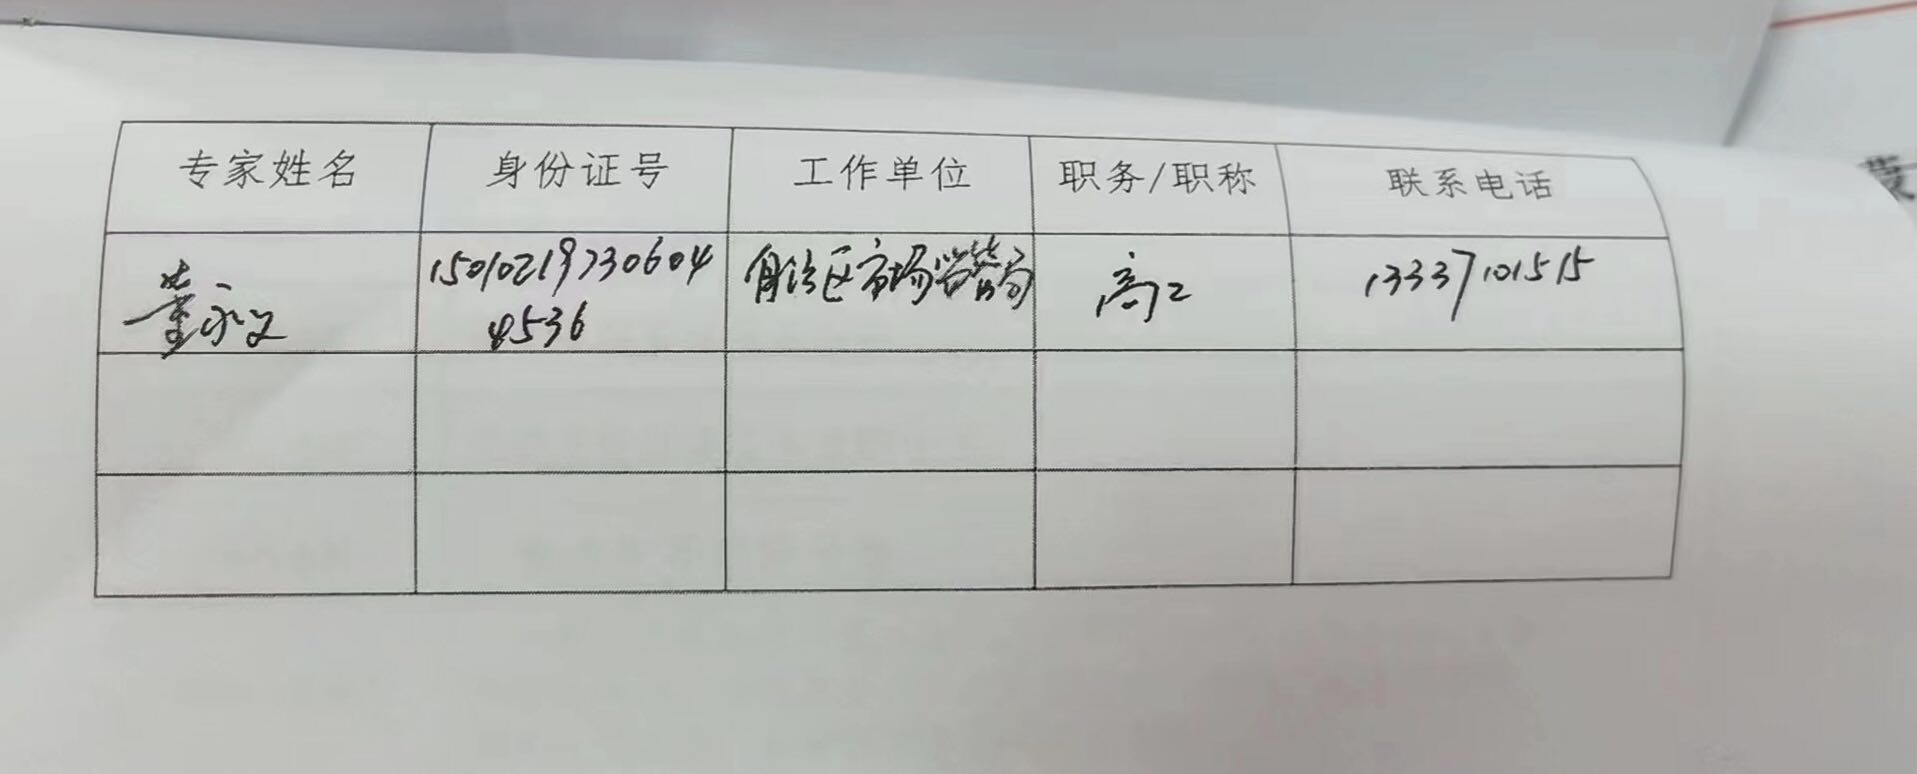 专家姓名 身份证号 工作单位 职务/职称 联系电话
董永文 150102197306044536 自治区市场监管局 高工 13337101515